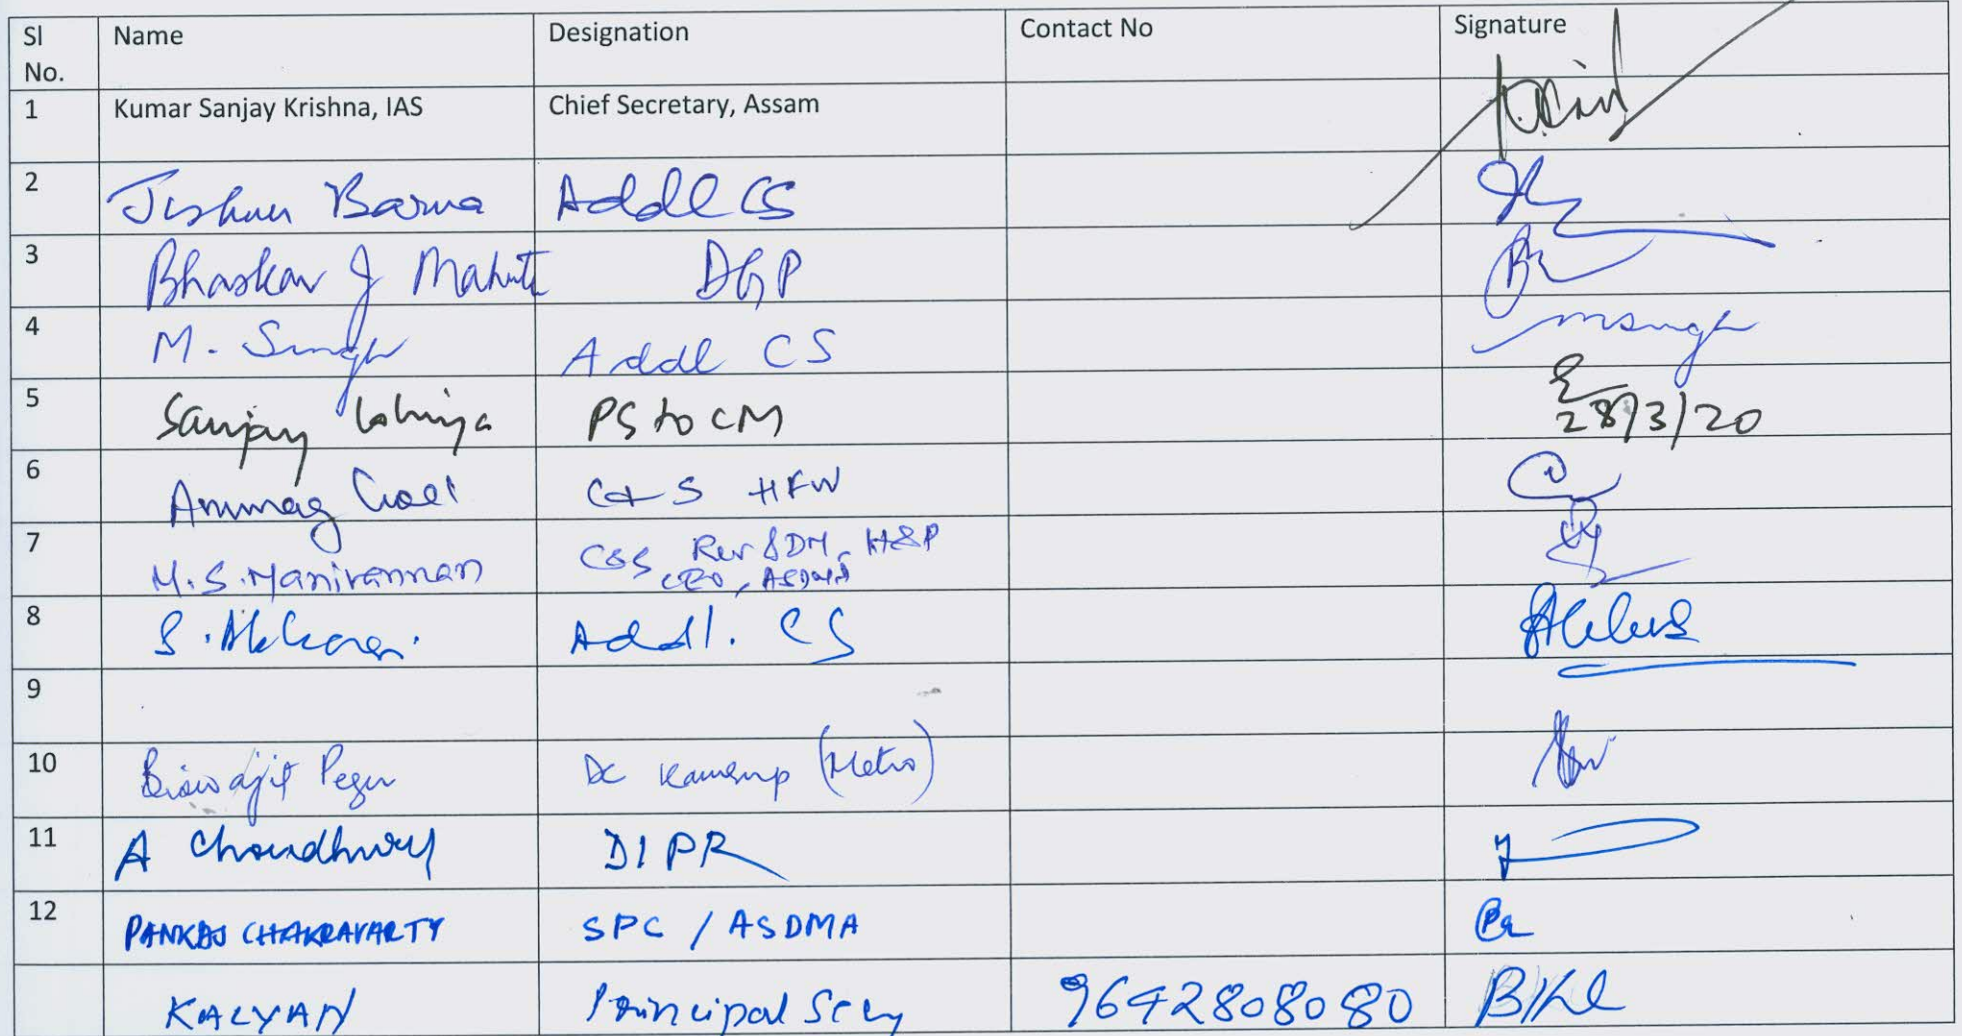 Sl No. Name Designation Contact No Signature
1 Kumar Sanjay Krishna, IAS Chief Secretary, Assam
2 Jishnu Barua Addl CS
3 Bhaskar J Mahanta DGP
4 M. Singh Addl CS msingh
5 Sanjay Lohiya PS to CM 28/3/20
6 Anurag Goel C&S HFW
7 M.S.Manivannan C&S Rev &DM, H&P
CEO, ASDMA
8 S. Addl. CS
9
10 Biswajit Pegu DC Kamrup (Metro)
11 A Choudhury DIPR
12 PANKAJ CHAKRAVARTY SPC / ASDMA
KALYAN Principal Secy 9642808080